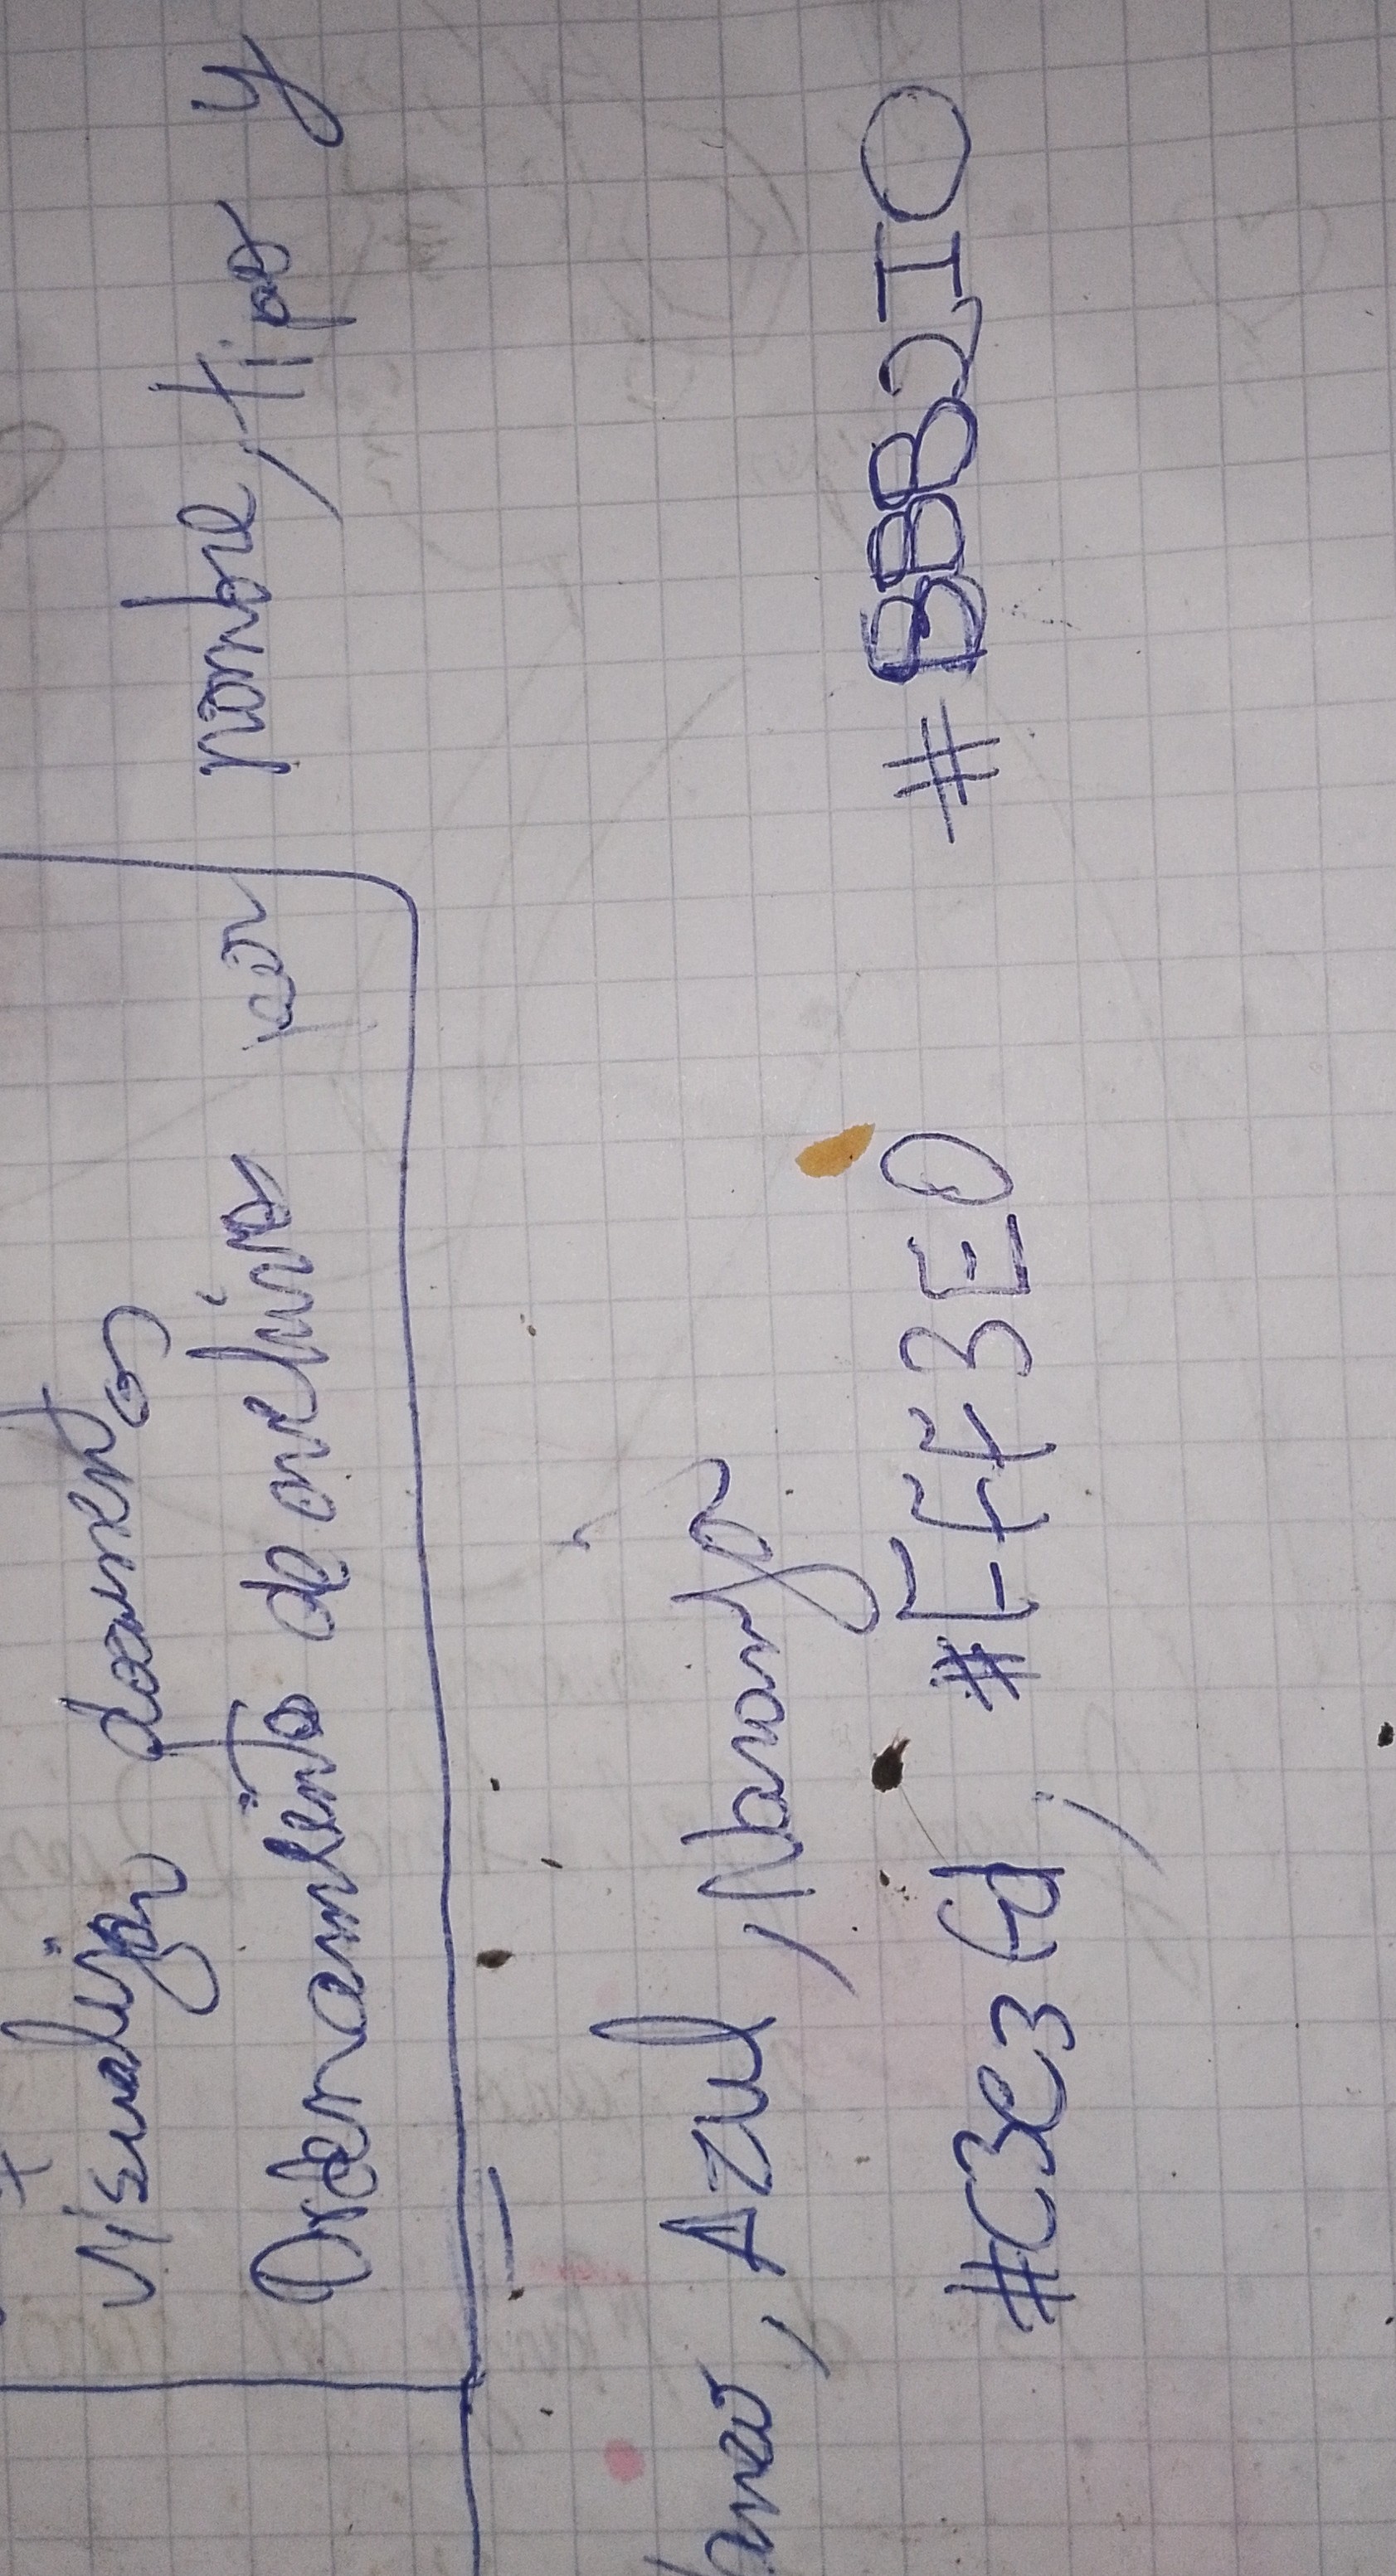 Visualizar documentos
Ordenamiento de archivos por nombre, tipo y
, Azul, Naranja
#C3C3Gd, #EFF3E0 #BBB2IO